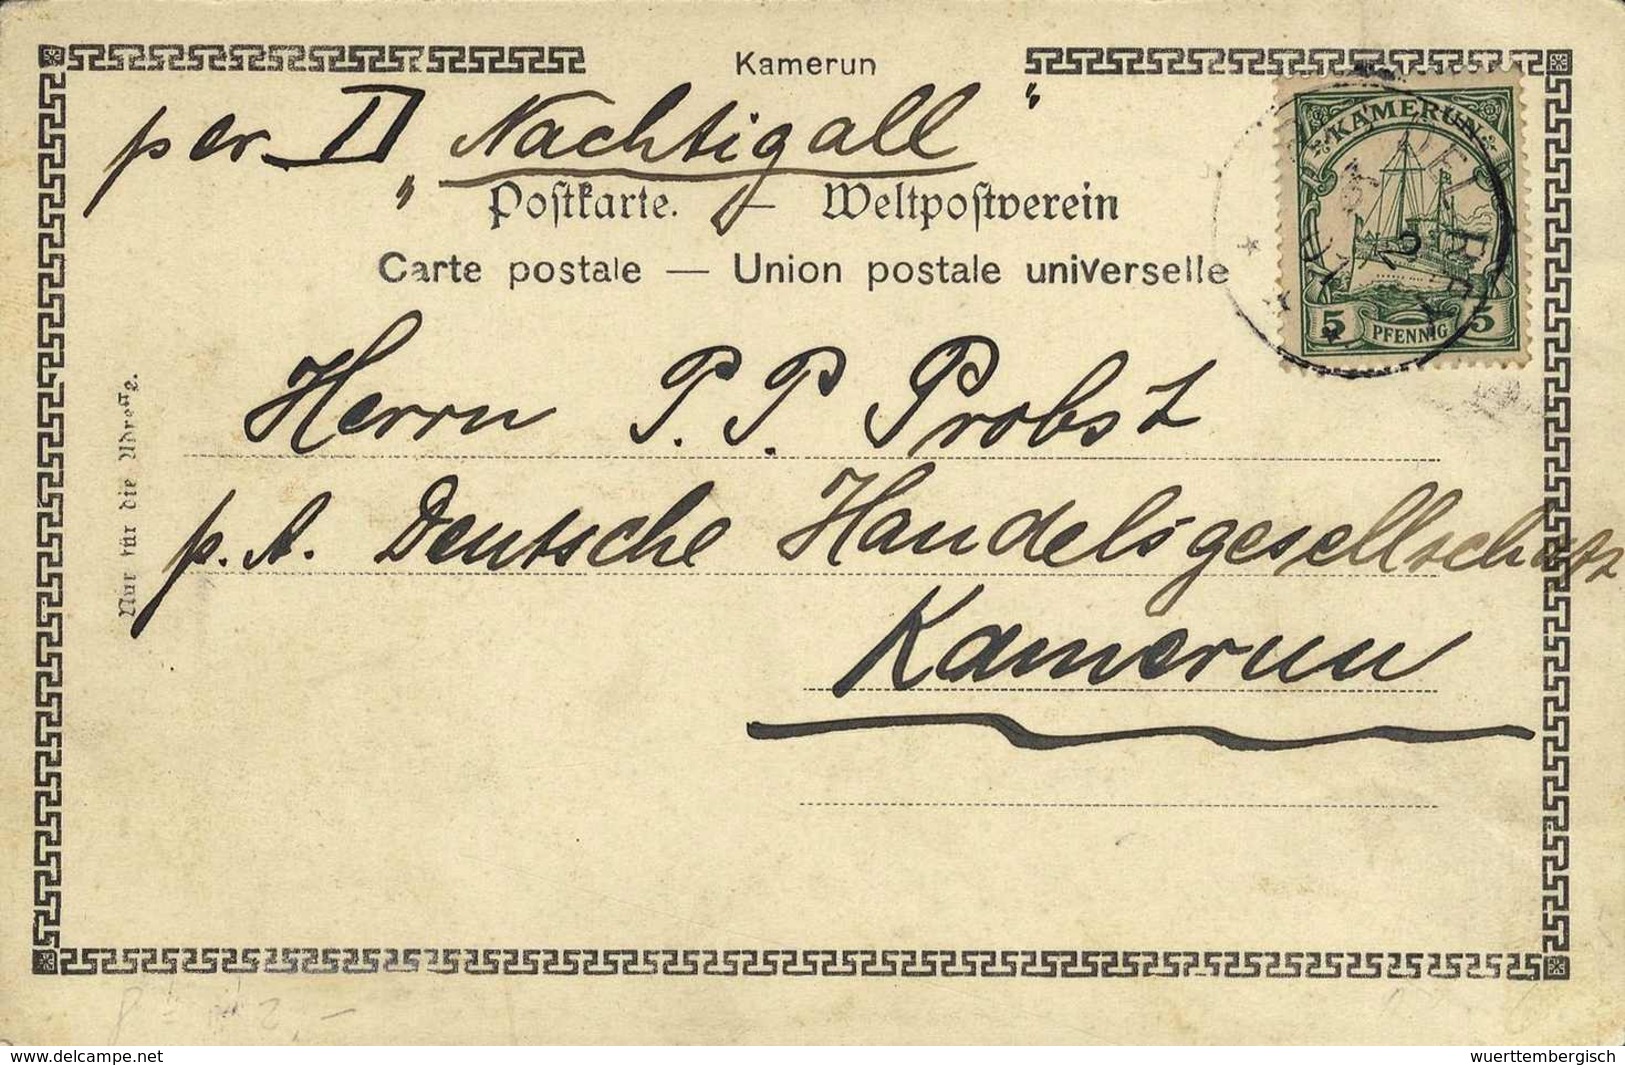 Kamerun
per D „Nachtigall“
Postkarte. — Weltpostverein
Carte postale — Union postale universelle
KAMERUN
2
5 PFENNIG 5
Nur für die Adresse.
Herrn P. P. Probst
p. A. Deutsche Handelsgesellschaft
Kamerun
www.delcampe.net
wuerttembergisch